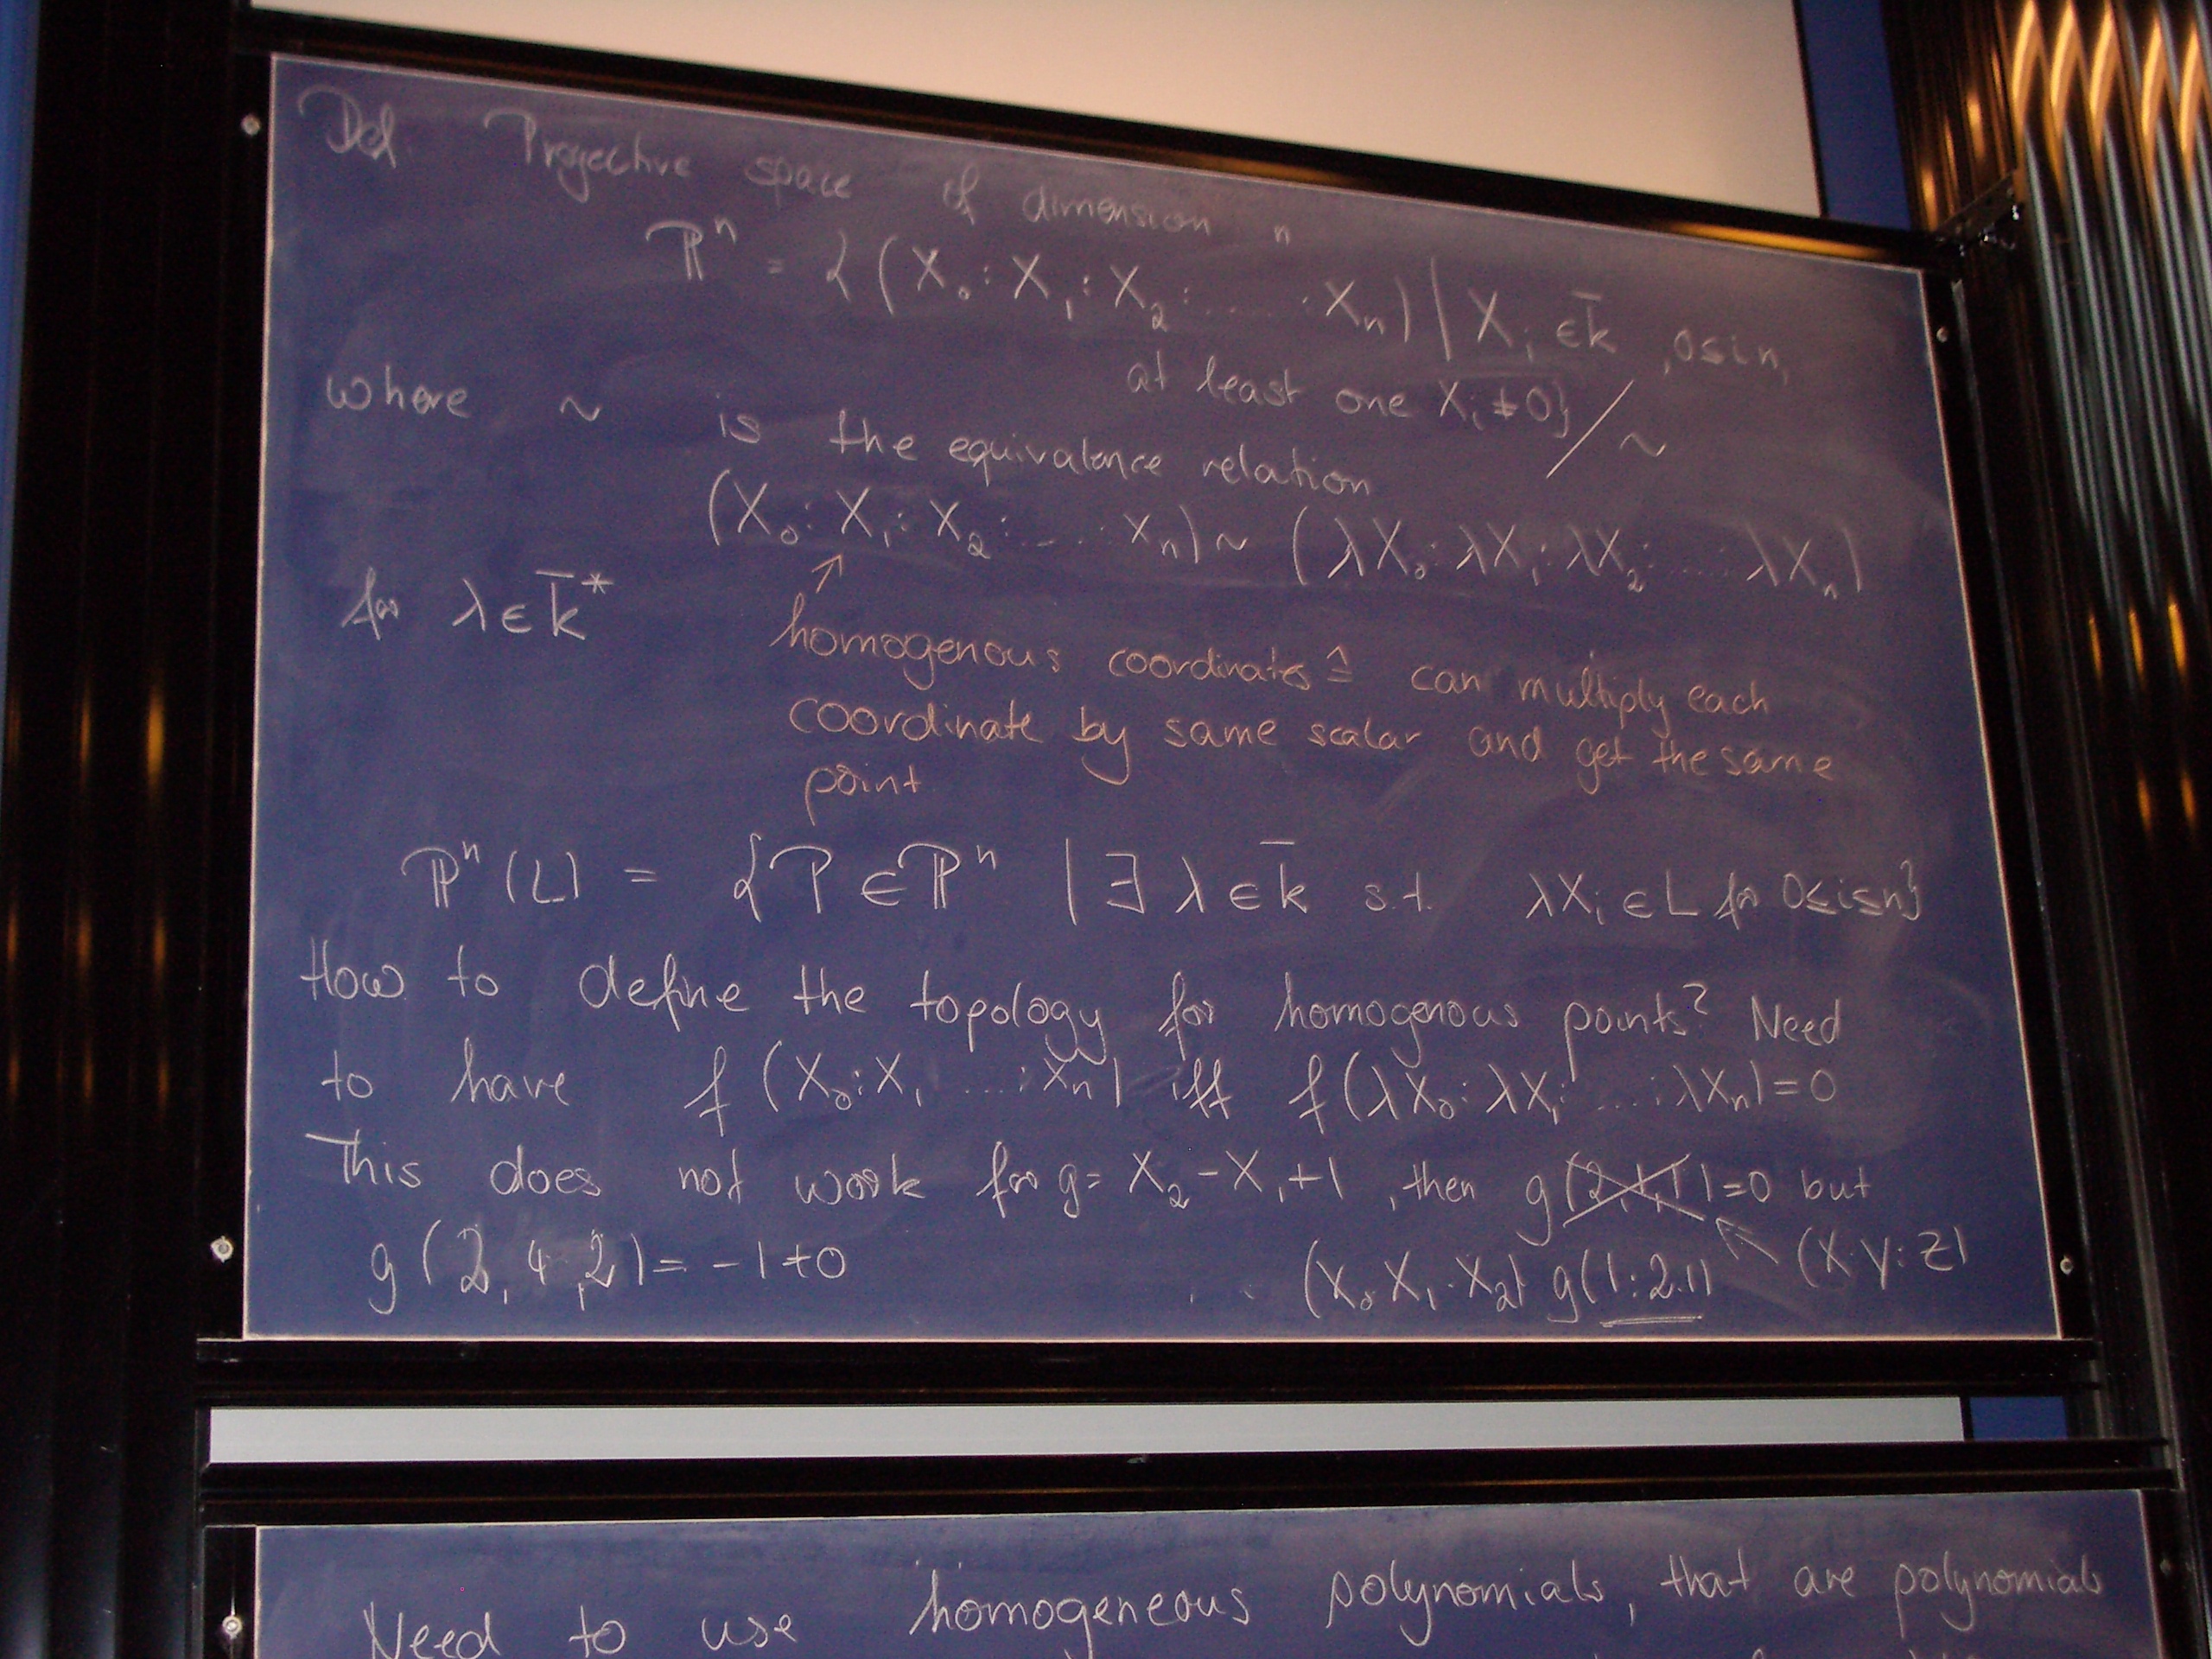 Def. Projective space of dimension n
ℙⁿ = {(X₀:X₁:X₂:.....:Xₙ) | Xᵢ ∈ k̄, 0≤i≤n,
at least one Xᵢ ≠ 0}/~
where ~ is the equivalence relation
(X₀:X₁:X₂:....Xₙ) ~ (λX₀:λX₁:λX₂:....λXₙ)
for λ ∈ k̄*
homogenous coordinates ≙ can multiply each
coordinate by same scalar and get the same
point
ℙⁿ(L) = {P ∈ ℙⁿ | ∃ λ ∈ k̄ s.t. λXᵢ ∈ L for 0≤i≤n}
How to define the topology for homogenous points? Need
to have f(X₀:X₁....:Xₙ) iff f(λX₀:λX₁:....:λXₙ)=0
This does not work for g= X₂-X₁+1, then g(2,1,1)=0 but
g(2,4,2)= -1≠0 (X₀:X₁:X₂) g(1:2:1) (X:Y:Z)
Need to use homogeneous polynomials, that are polynomials